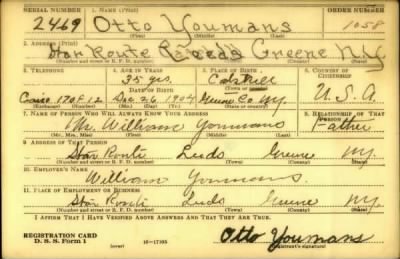 SERIAL NUMBER 1. NAME (Print) ORDER NUMBER
2469 Otto Youmans 1058
(First) (Middle) (Last)
2. ADDRESS (Print)
Star Route Leeds Greene N.Y.
(Number and street or R. F. D. number) (Town) (County) (State)
3. TELEPHONE 4. AGE IN YEARS 5. PLACE OF BIRTH 6. COUNTRY OF CITIZENSHIP
35 yrs. Catskill
DATE OF BIRTH (Town or county)
Cairo 170F12 Dec. 26 1904 Greene Co N.Y. U.S.A
(Exchange) (Number) (Mo.) (Day) (Yr.) (State or country)
7. NAME OF PERSON WHO WILL ALWAYS KNOW YOUR ADDRESS 8. RELATIONSHIP OF THAT PERSON
Mr. William Youmans Father
(Mr., Mrs., Miss) (First) (Middle) (Last)
9. ADDRESS OF THAT PERSON
Star Route Leeds Greene N.Y.
(Number and street or R. F. D. number) (Town) (County) (State)
10. EMPLOYER'S NAME
William Youmans
11. PLACE OF EMPLOYMENT OR BUSINESS
Star Route Leeds Greene N.Y.
(Number and street or R. F. D. number) (Town) (County) (State)
I AFFIRM THAT I HAVE VERIFIED ABOVE ANSWERS AND THAT THEY ARE TRUE.
REGISTRATION CARD
D. S. S. Form 1 (over) 16—17105 Otto Youmans
(Registrant's signature)